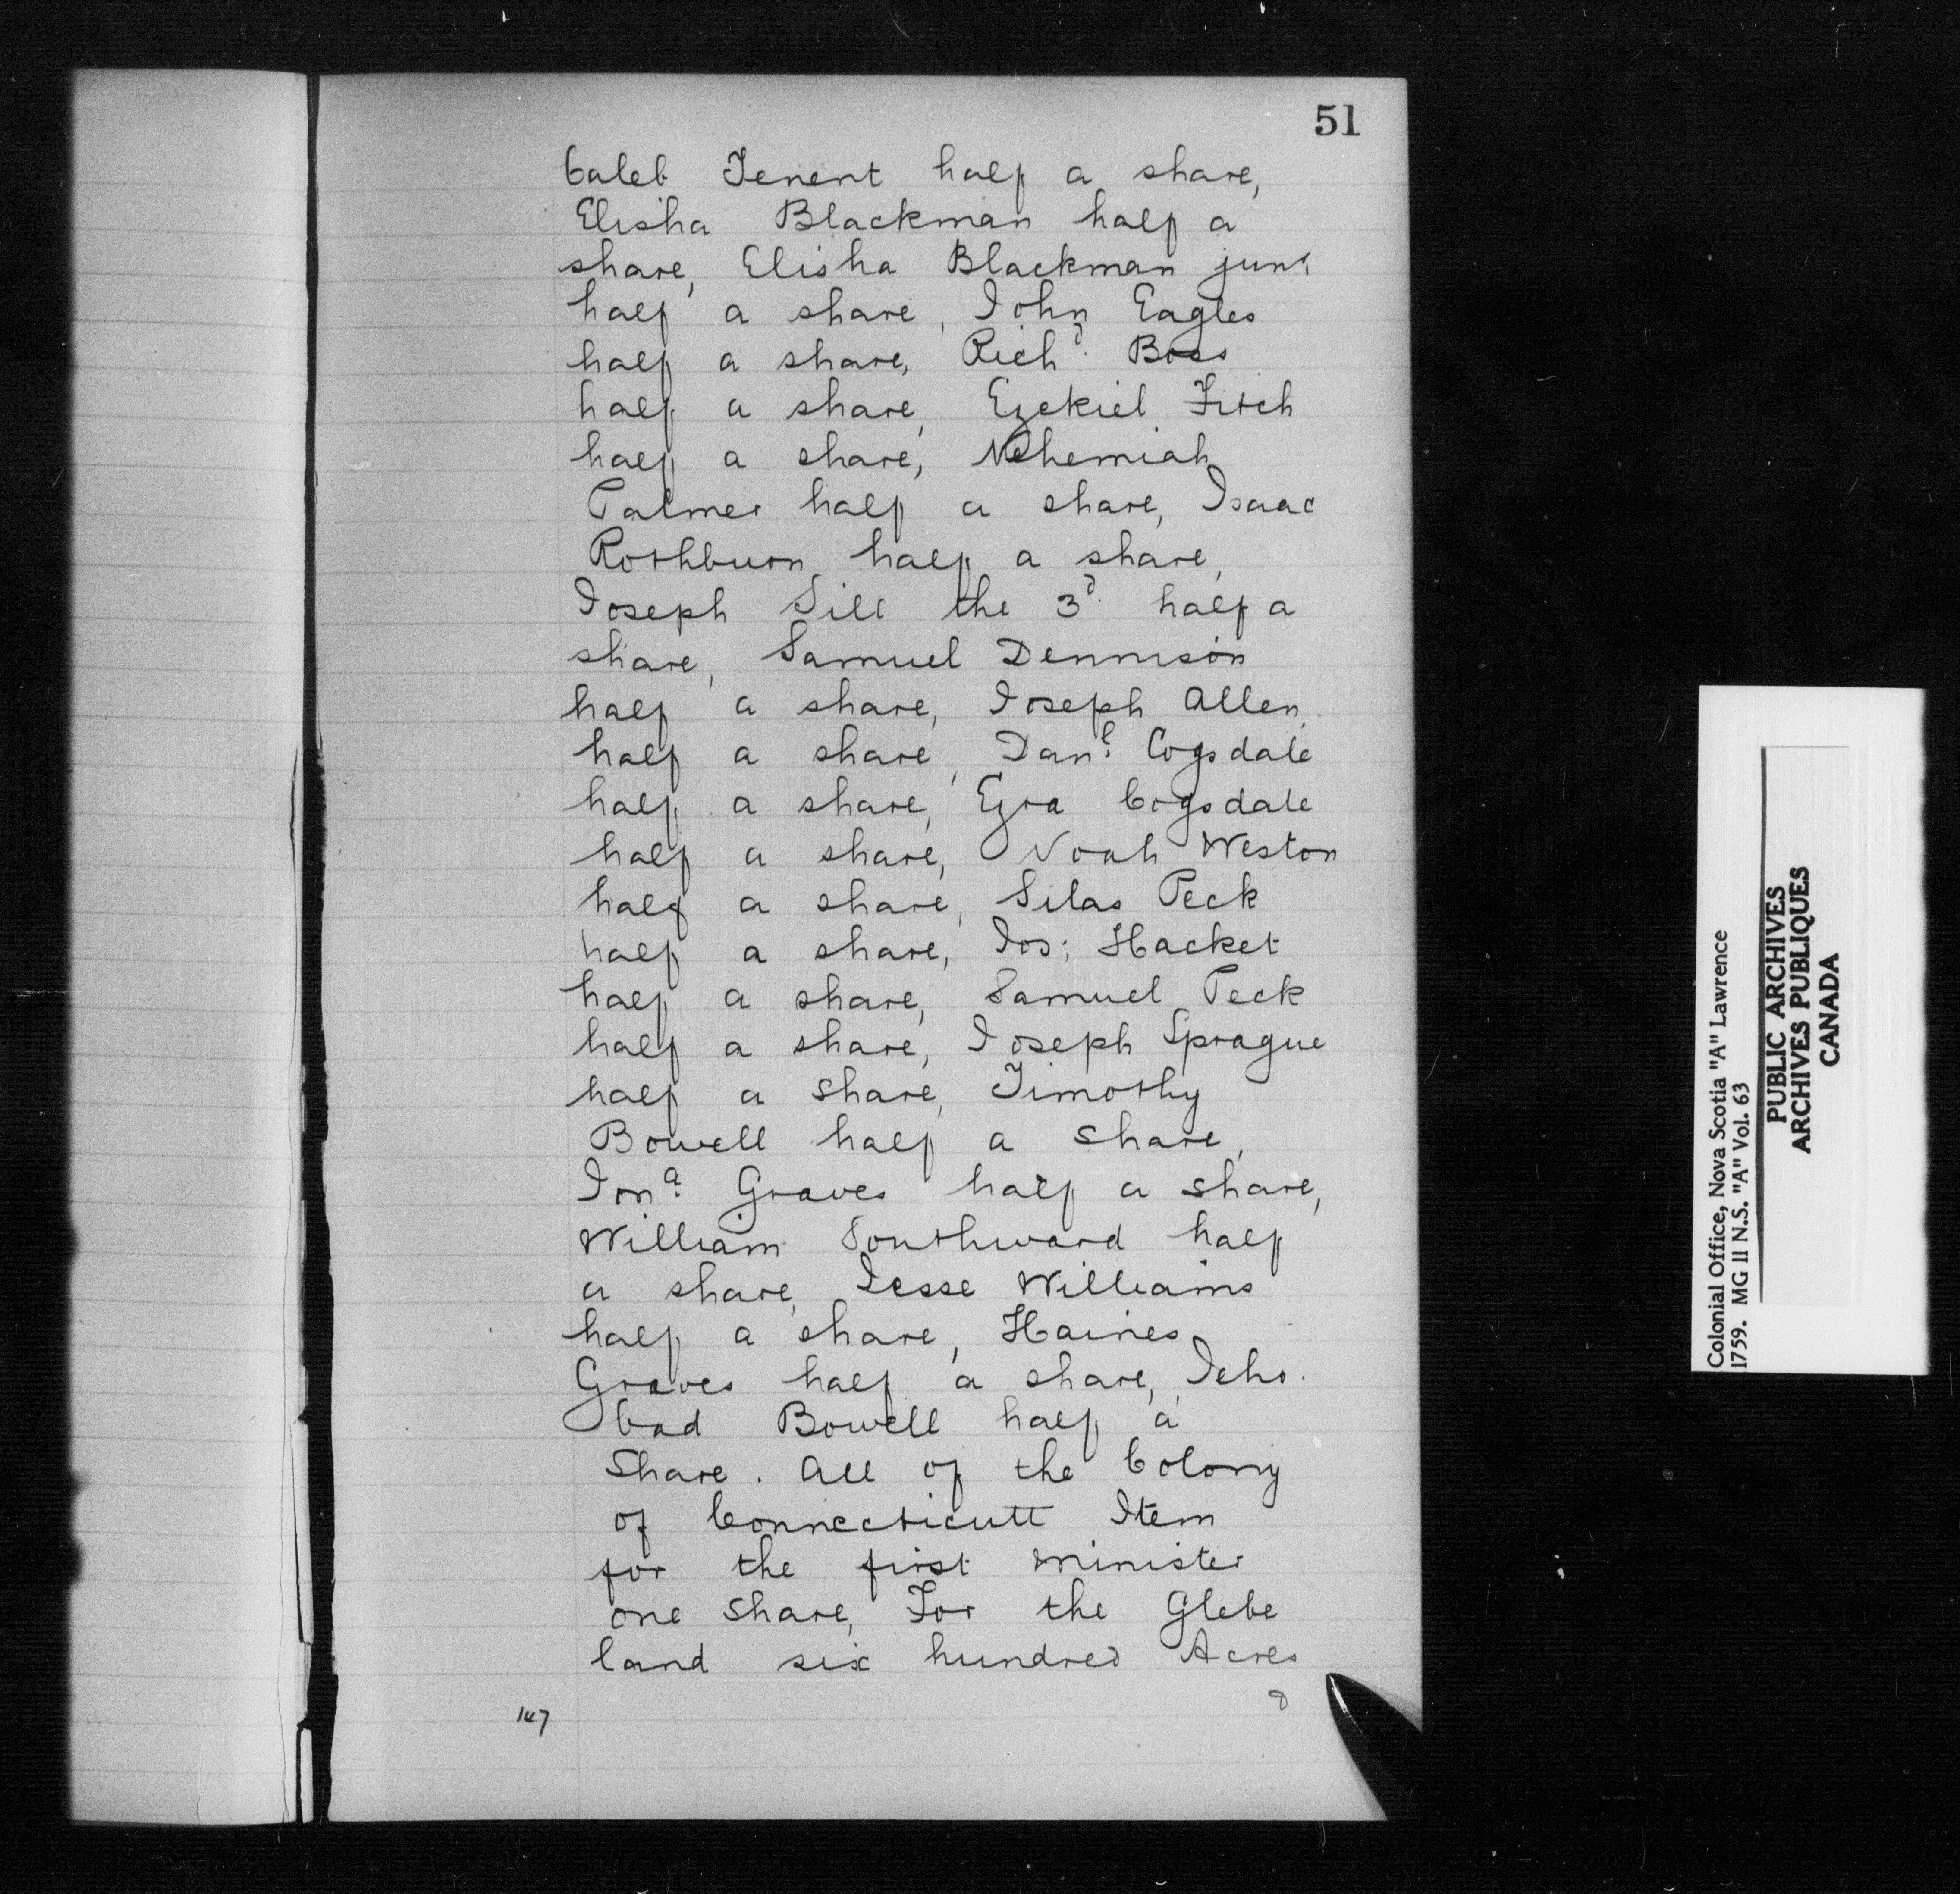 51
Caleb Tenent half a share,
Elisha Blackman half a
share, Elisha Blackman junr
half a share, John Eagles
half a share, Richd. Boss
half a share, Ezekiel Fitch
half a share, Nehemiah
Palmer half a share, Isaac
Rothburn half a share,
Joseph Sill the 3d. half a
share, Samuel Dennison
half a share, Joseph Allen,
half a share, Danl. Cogsdale
half a share, Ezra Cogsdale
half a share, Noah Weston
half a share, Silas Peck
half a share, Jos; Hacket
half a share, Samuel Peck
half a share, Joseph Sprague
half a share, Timothy
Bowell half a share,
Jona. Graves half a share,
William Southward half
a share, Jesse Williams
half a share, Haines
Graves half a share, Icho.
bad Bowell half a
share. All of the Colony
of Connecticutt Item
for the first minister
one share, For the Glebe
land six hundred Acres
147
8
Colonial Office, Nova Scotia "A" Lawrence
1759. MG 11 N.S. "A" Vol. 63
PUBLIC ARCHIVES
ARCHIVES PUBLIQUES
CANADA